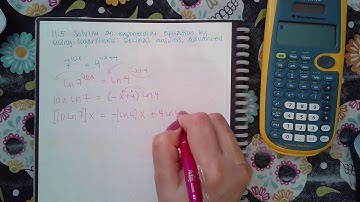 11.5 Solving an exponential equation by
using logarithms: Decimal answers, advanced
7^10x = 4^-x+4
ln 7^10x = ln 4^-x+4
10x ln 7 = (-x+4) ln 4
[10 ln 7] x = -(ln 4) x + 4 ln 4